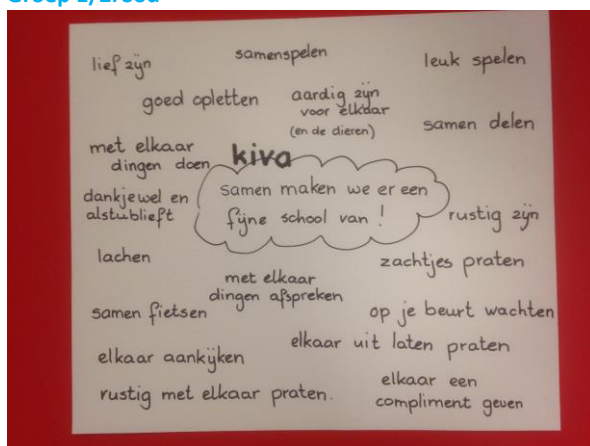 lief zijn
samenspelen
leuk spelen
goed opletten
aardig zijn
voor elkaar
(en de dieren)
samen delen
met elkaar
dingen doen
kiva
dankjewel en
alstublieft
samen maken we er een
fijne school van !
rustig zijn
lachen
zachtjes praten
met elkaar
dingen afspreken
samen fietsen
op je beurt wachten
elkaar uit laten praten
elkaar aankijken
elkaar een
compliment geven
rustig met elkaar praten.